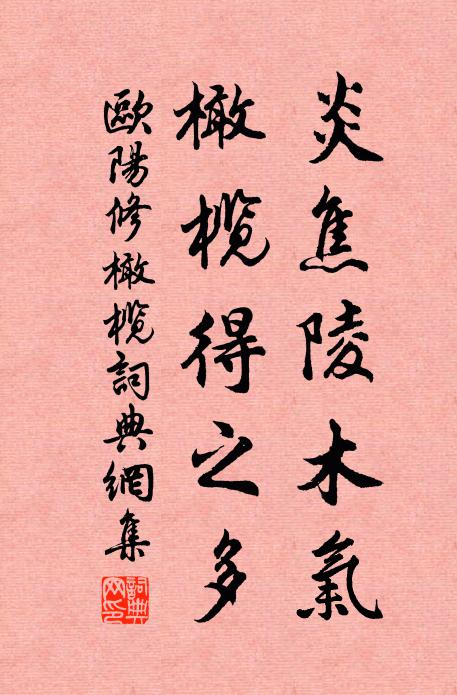 炎焦陵木氣
橄榄得之多
歐陽修橄榄詞典網集
詞典网印